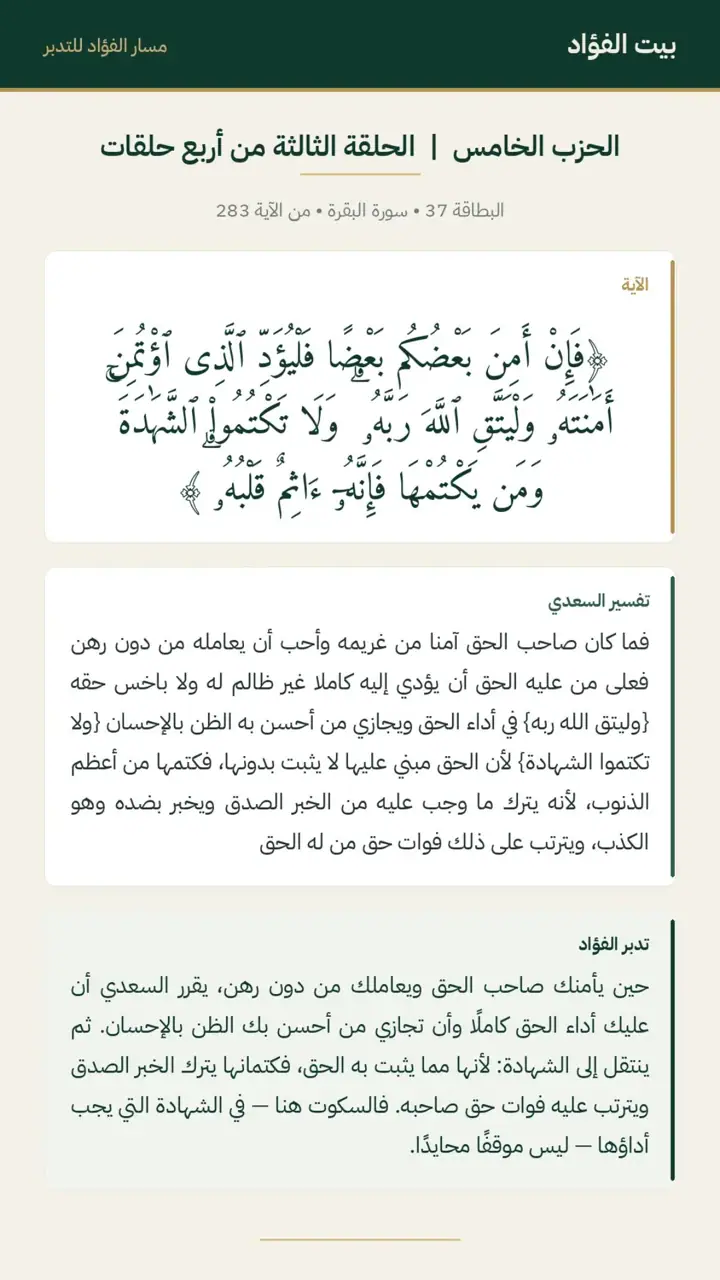 بيت الفؤاد
مسار الفؤاد للتدبر
الحزب الخامس | الحلقة الثالثة من أربع حلقات
البطاقة 37 • سورة البقرة • من الآية 283
الآية
﴿فَإِنْ أَمِنَ بَعْضُكُم بَعْضًا فَلْيُؤَدِّ ٱلَّذِى ٱؤْتُمِنَ
أَمَـٰنَتَهُۥ وَلْيَتَّقِ ٱللَّهَ رَبَّهُۥ ۗ وَلَا تَكْتُمُوا۟ ٱلشَّهَـٰدَةَ ۚ
وَمَن يَكْتُمْهَا فَإِنَّهُۥٓ ءَاثِمٌ قَلْبُهُۥ ۗ ﴾
تفسير السعدي
فما كان صاحب الحق آمنا من غريمه وأحب أن يعامله من دون رهن
فعلى من عليه الحق أن يؤدي إليه كاملا غير ظالم له ولا باخس حقه
{وليتق الله ربه} في أداء الحق ويجازي من أحسن به الظن بالإحسان {ولا
تكتموا الشهادة} لأن الحق مبني عليها لا يثبت بدونها، فكتمها من أعظم
الذنوب، لأنه يترك ما وجب عليه من الخبر الصدق ويخبر بضده وهو
الكذب، ويترتب على ذلك فوات حق من له الحق
تدبر الفؤاد
حين يأمنك صاحب الحق ويعاملك من دون رهن، يقرر السعدي أن
عليك أداء الحق كاملًا وأن تجازي من أحسن بك الظن بالإحسان. ثم
ينتقل إلى الشهادة: لأنها مما يثبت به الحق، فكتمانها يترك الخبر الصدق
ويترتب عليه فوات حق صاحبه. فالسكوت هنا — في الشهادة التي يجب
أداؤها — ليس موقفًا محايدًا.